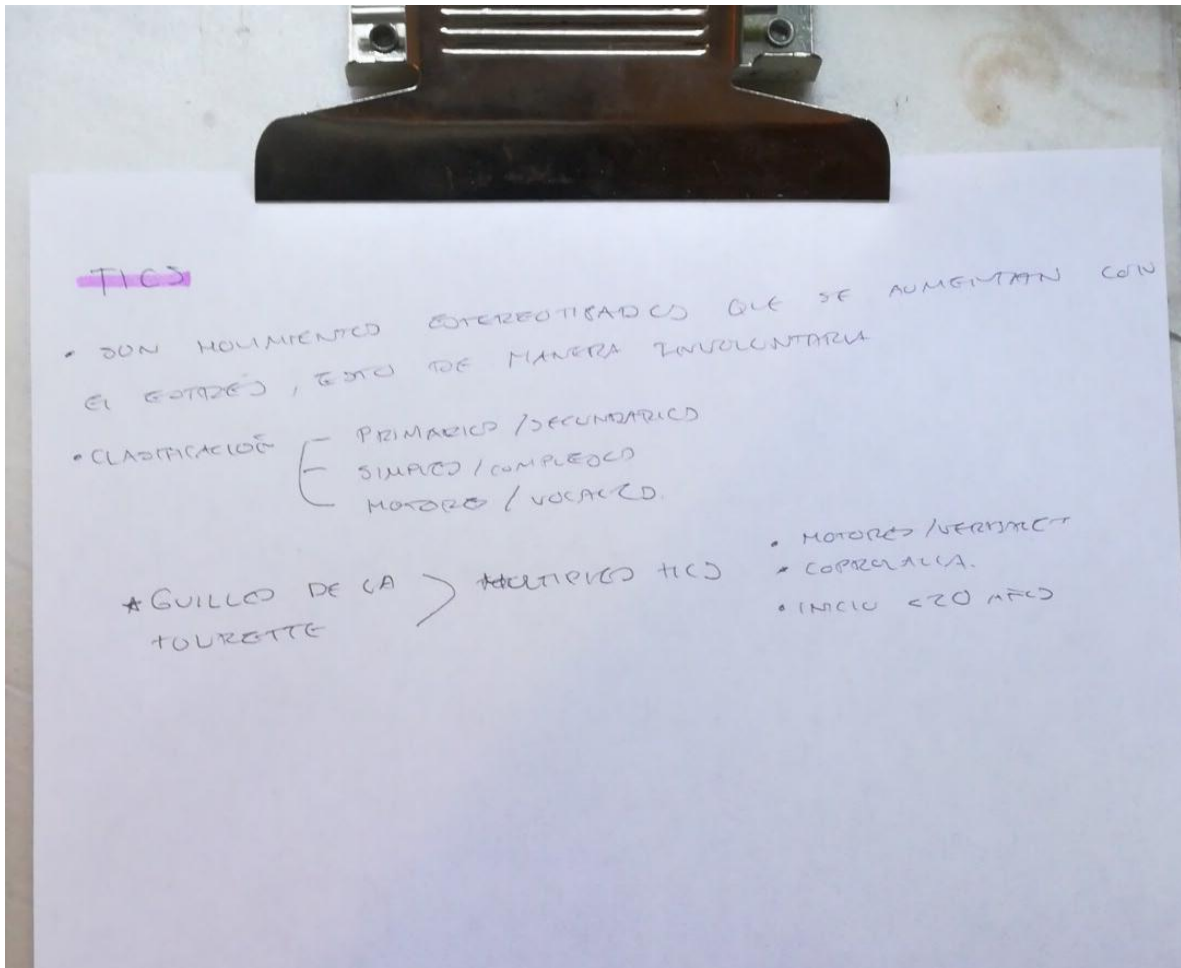 TICS
• SON MOVIMIENTOS ESTEREOTIPADOS QUE SE AUMENTAN CON
El ESTRÉS, ESTO DE MANERA INVOLUNTARIA
• CLASIFICACIÓN
PRIMARIOS / SECUNDARIOS
SIMPLES / COMPLEJOS
MOTORES / VOCALES.
* GUILLES DE LA
TOURETTE
MULTIPLES TICS
• MOTORES / VERBALES
• COPROLALIA.
• INICIO <20 AÑOS